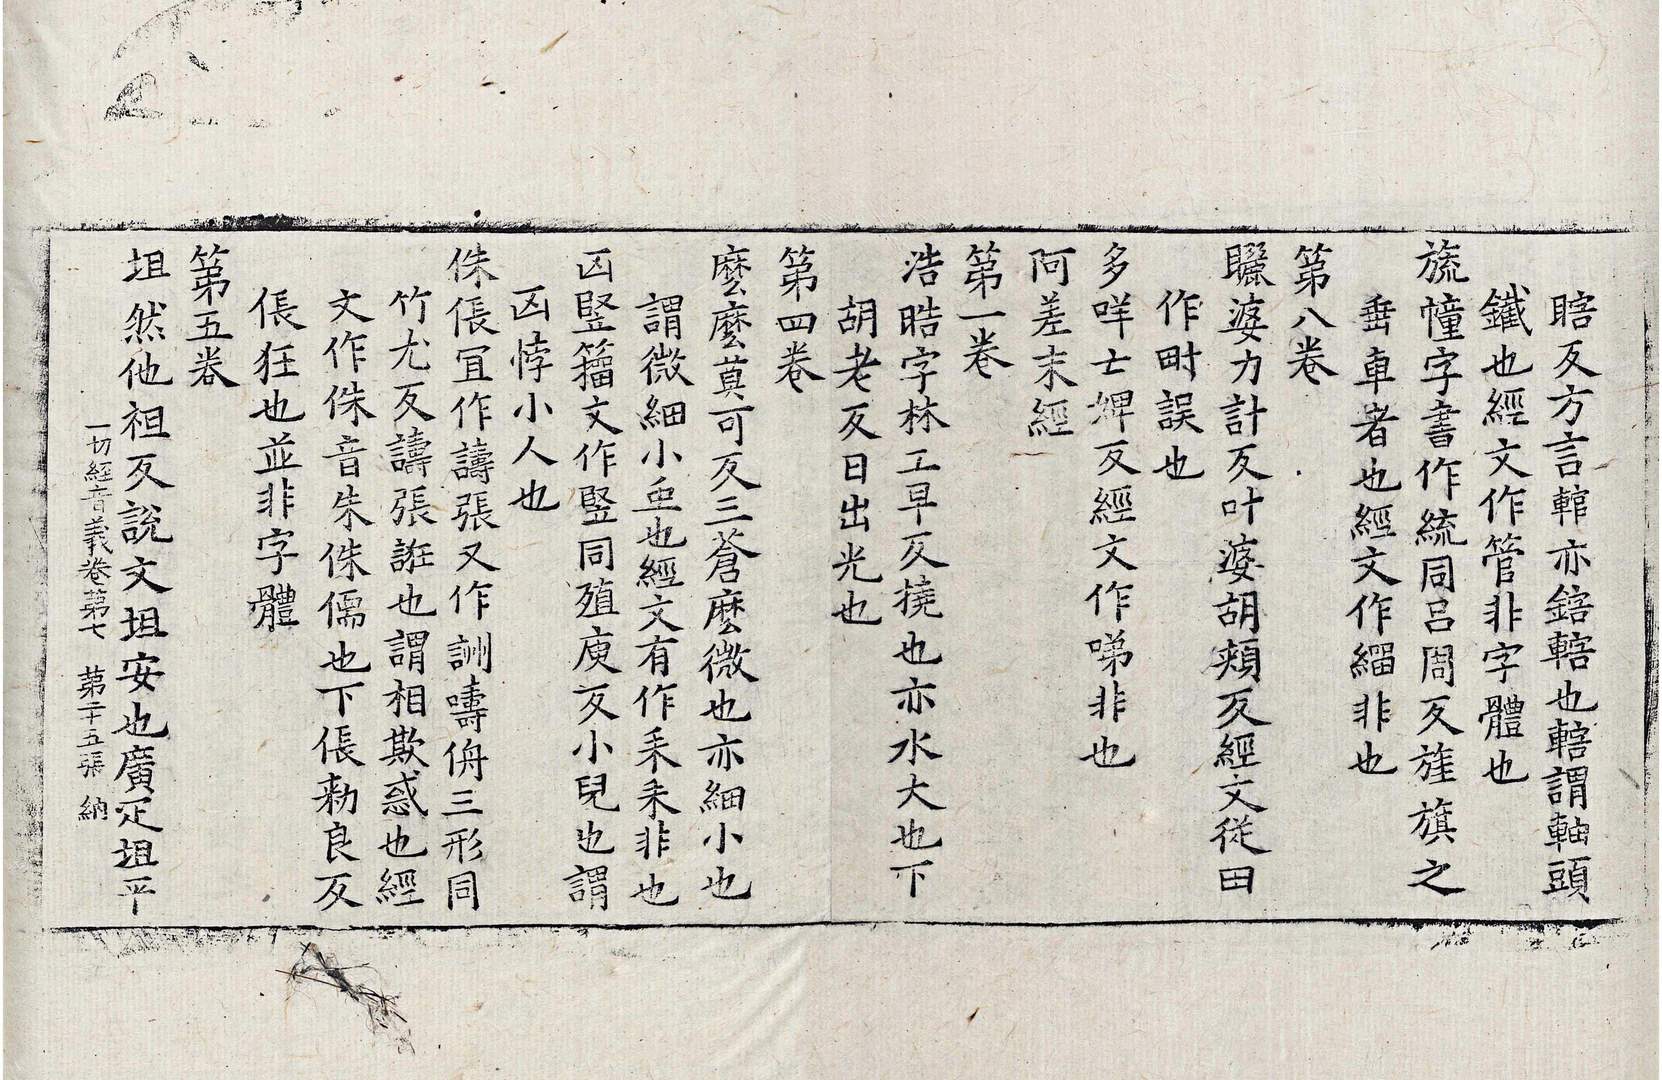 瞎反方言輨亦鎋轄也轄謂軸頭
鐵也經文作管非字體也
旒幢字書作統同呂周反旌旗之
垂車者也經文作緇非也
第八卷
矖婆力計反叶婆胡頰反經文從田
作㽛誤也
多咩士婢反經文作㖒非也
阿差末經
第一卷
浩晧字林工早反撓也亦水大也下
胡老反日出光也
第四卷
麼麼莫可反三蒼麼微也亦細小也
謂微細小虫也經文有作釆釆非也
凶豎籀文作竪同殖庾反小兒也謂
凶悖小人也
侏倀冝作譸張又作詶嚋侜三形同
竹尤反譸張誑也謂相欺惑也經
文作侏音朱侏儒也下倀勑良反
倀狂也並非字體
第五卷
坦然他祖反說文坦安也廣疋坦平
一切經音義卷第七 第二十五張 納